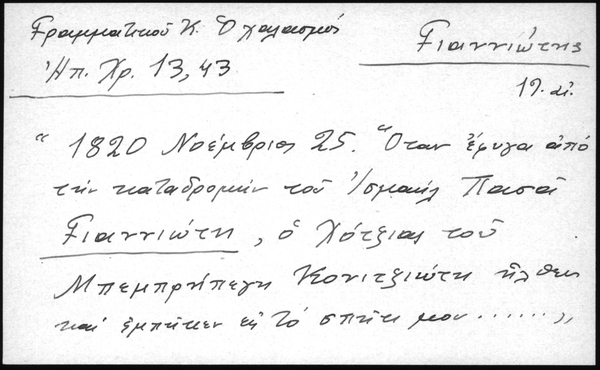 Γραμματικοῦ Κ. Ὁ χαλασμός
Ἠπ. Χρ. 13, 43
Γιαννιώτης
19. αἰ.
“ 1820 Νοέμβριος 25. Ὅταν ἔφυγα ἀπό
τήν καταδρομήν τοῦ Ἰσμαήλ Πασᾶ
Γιαννιώτη, ὁ Χότζιας τοῦ
Μπεμπρήπεγη Κονιτζιώτη ἦλθεν
καί ἐμπῆκεν εἰς τό σπῆτι μου ...... ,,